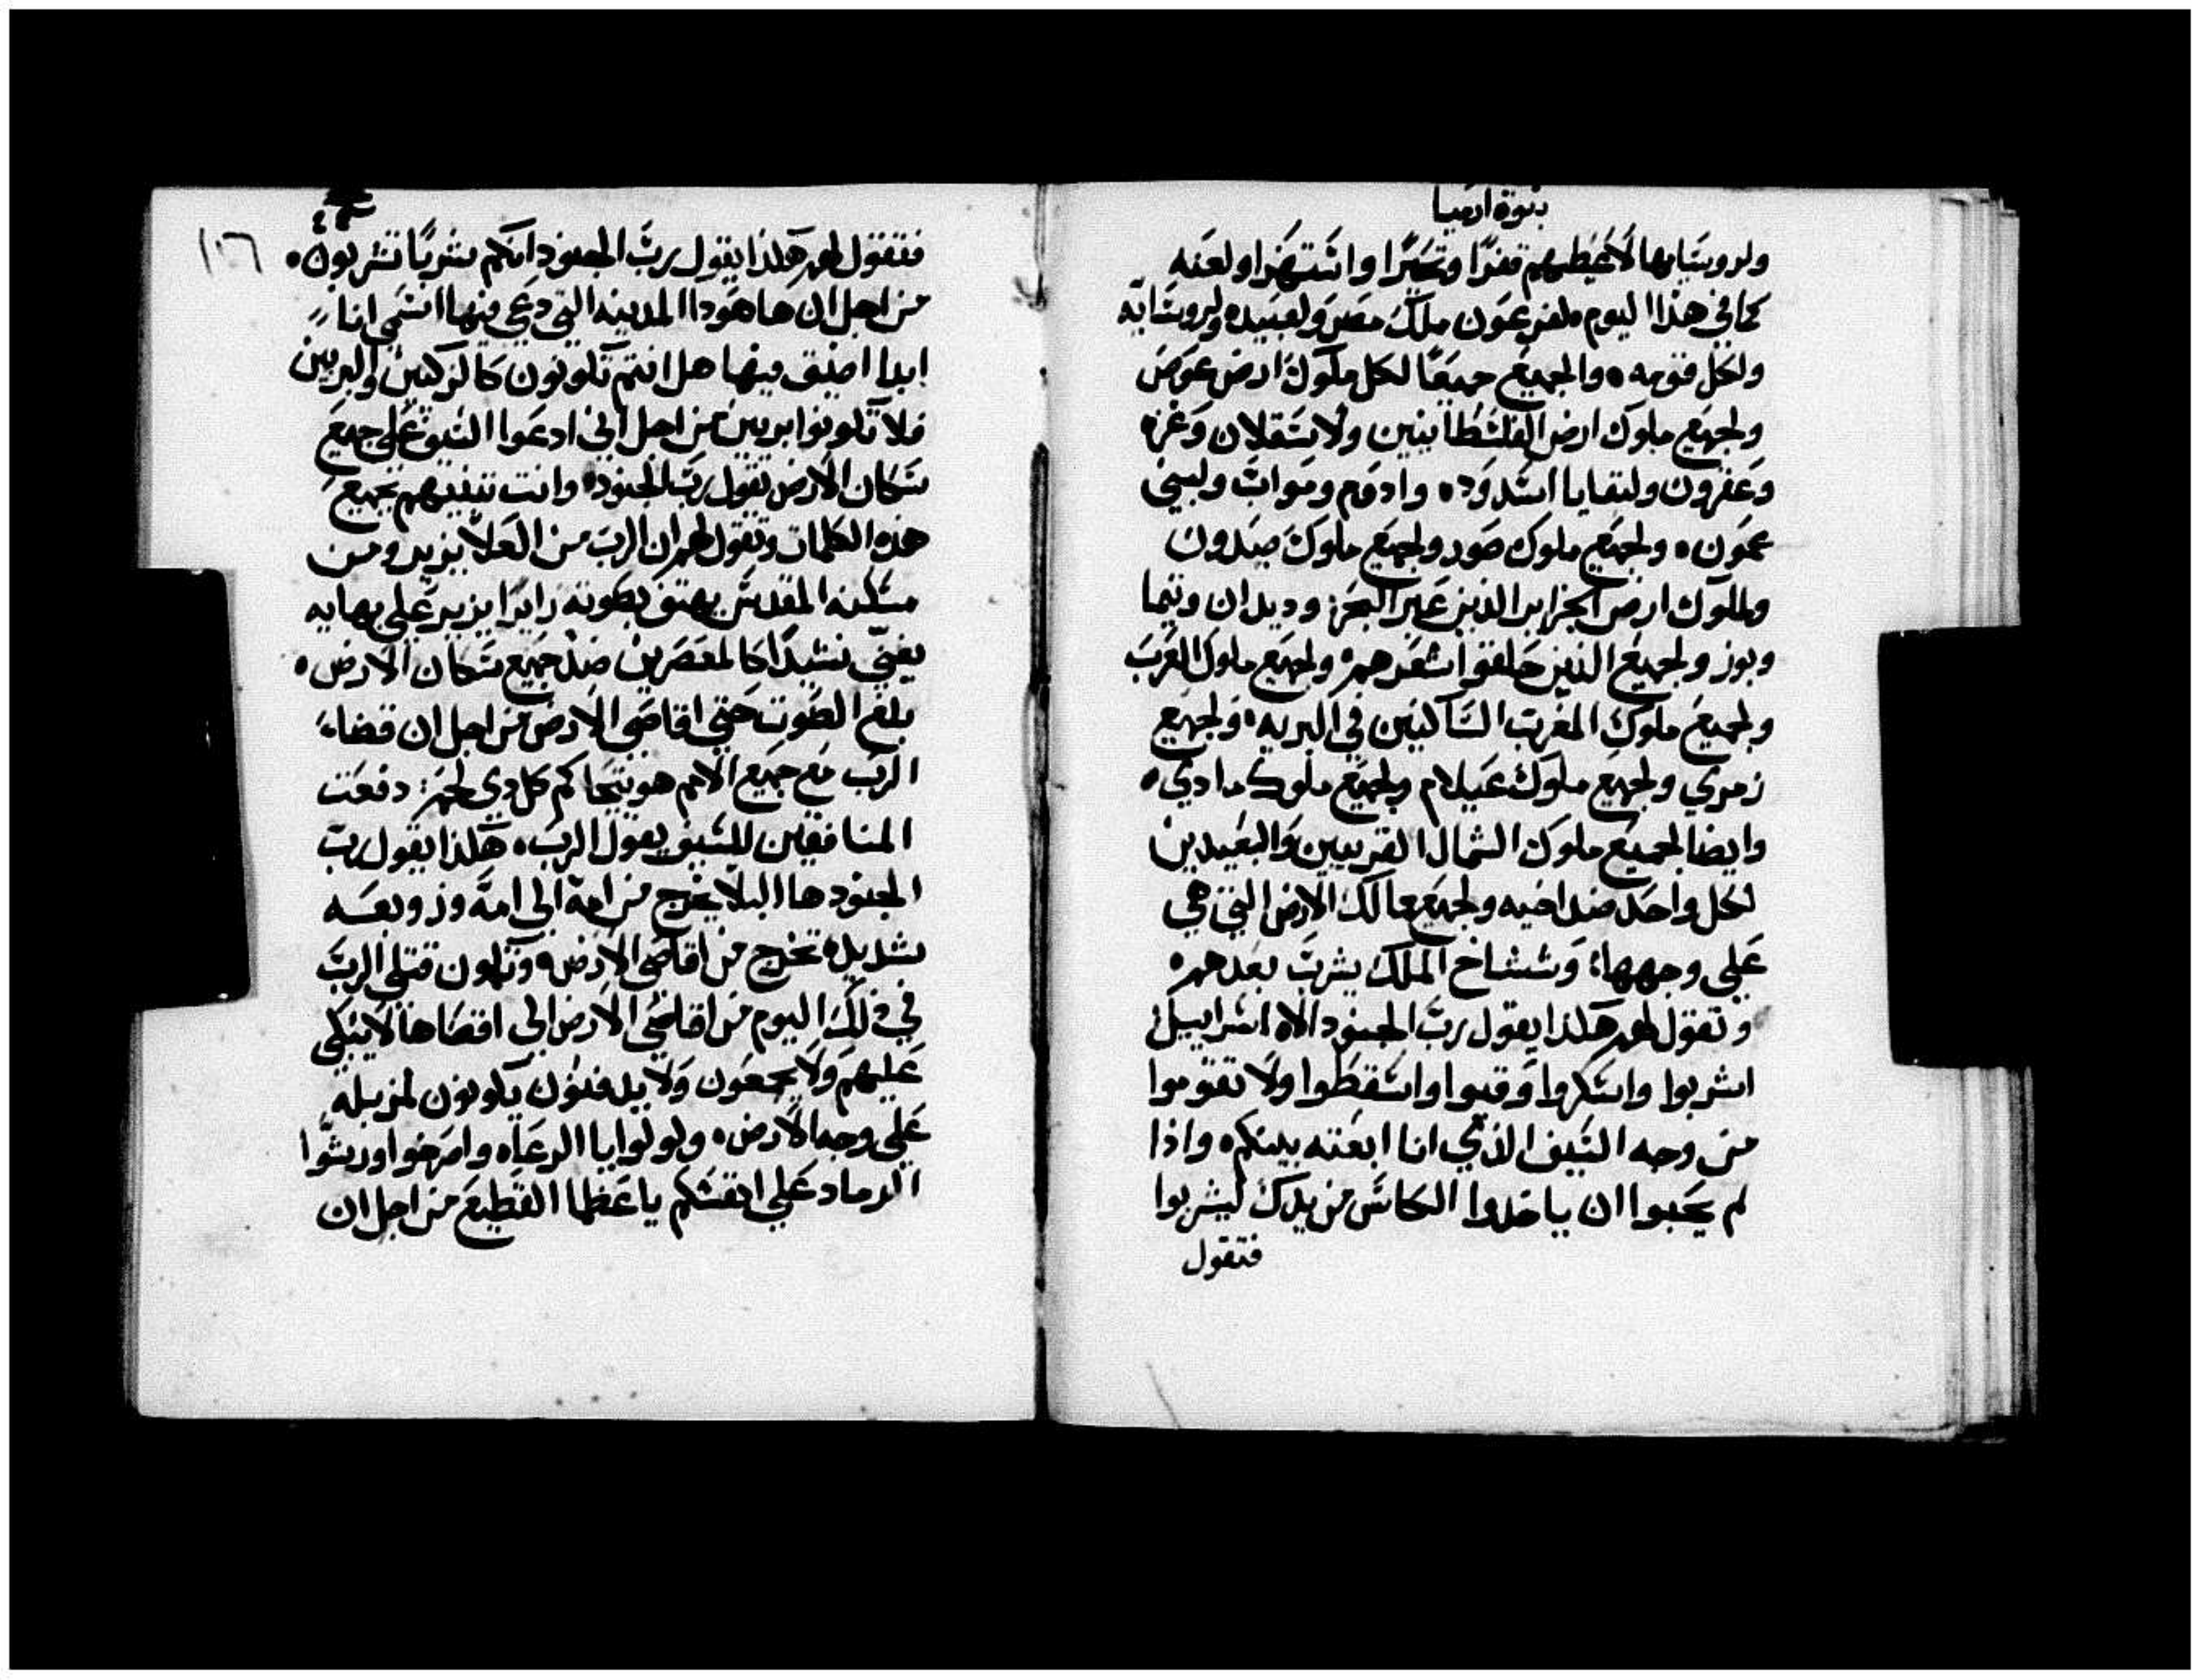 نبوة ارميا
ولروسايها لاعطيهم قفرًا وتحيرًا واستهزا ولعنه
كما في هذا اليوم ٥ لفرعون ملك مصر ولعبيده ولروسايه
ولكل قومه ٥ والجميع جميعًا لكل ملوك ارض عوص
ولجميع ملوك ارض الفلسطانيين ولاسقلان وغزه
وعقرون ولبقايا اسدود ٥ وادوم ومواب ولبني
عمون ٥ ولجميع ملوك صور ولجميع ملوك صيدون
ولملوك ارض الجزاير الذين عبر البحر: وديدان وتيما
وبوز ولجميع الذين حلقوا شعرهم ٥ ولجميع ملوك العرب
ولجميع ملوك المغرب الساكنين في البريه ٥ ولجميع
زمري ولجميع ملوك عيلام ولجميع ملوك مادي ٥
وايضا لجميع ملوك الشمال القريبين والبعيدين
لكل واحد ضد اخيه ولجميع ممالك الارض التي هي
علي وجهها: وششاخ الملك يشرب بعدهم ٥
وتقول لهم هكذا يقول رب الجنود الاه اسراييل
اشربوا واسكروا وقيوا واسقطوا ولا تقوموا
من وجه السيف الذي انا ابعته بينكم ٥ واذا
لم يحبوا ان ياخدوا الكاس من يدك ليشربوا
فتقول
١٠٦
فتقول لهم هكذا يقول رب الجنود انكم شربًا تشربون ٥
من اجل ان هاهودا المدينه التي دعي فيها اسمي انا
ابدا اضيق فيها هل انتم تكونون كالزكيين والبريين
فلا تكونوا بريين من اجل اني ادعوا السيف علي جميع
سكان الارض يقول رب الجنود ٥ وانت تتنبيهم بجميع
هذه الكلمات وتقول لهم ان الرب من العلا يزير ومن
مسكنه المقدس يهتف بصوته زايرًا يزير علي بهايه
يغني نشيدًا كالمعصرين ضد جميع سكان الارض ٥
بلغ الصوت حتي اقاصي الارض من اجل ان قضاء
الرب مع جميع الامم هو يتحاكم كل دي لحم: دفعت
المنافقين للسيف يقول الرب ٥ هكذا يقول رب
الجنود ها البلا يخرج من امه الي امه وزوبعه
شديده تخرج من اقاصي الارض ٥ وتكون قتلي الرب
في ذلك اليوم من اقاصي الارض الي اقصاها لا يبكي
عليهم ولا يجمعون ولا يدفنون يكونون لمزبله
علي وجه الارض ٥ ولولوا يا الرعاه واصرخوا ورشوا
الرماد علي انفسكم يا عظما القطيع من اجل ان